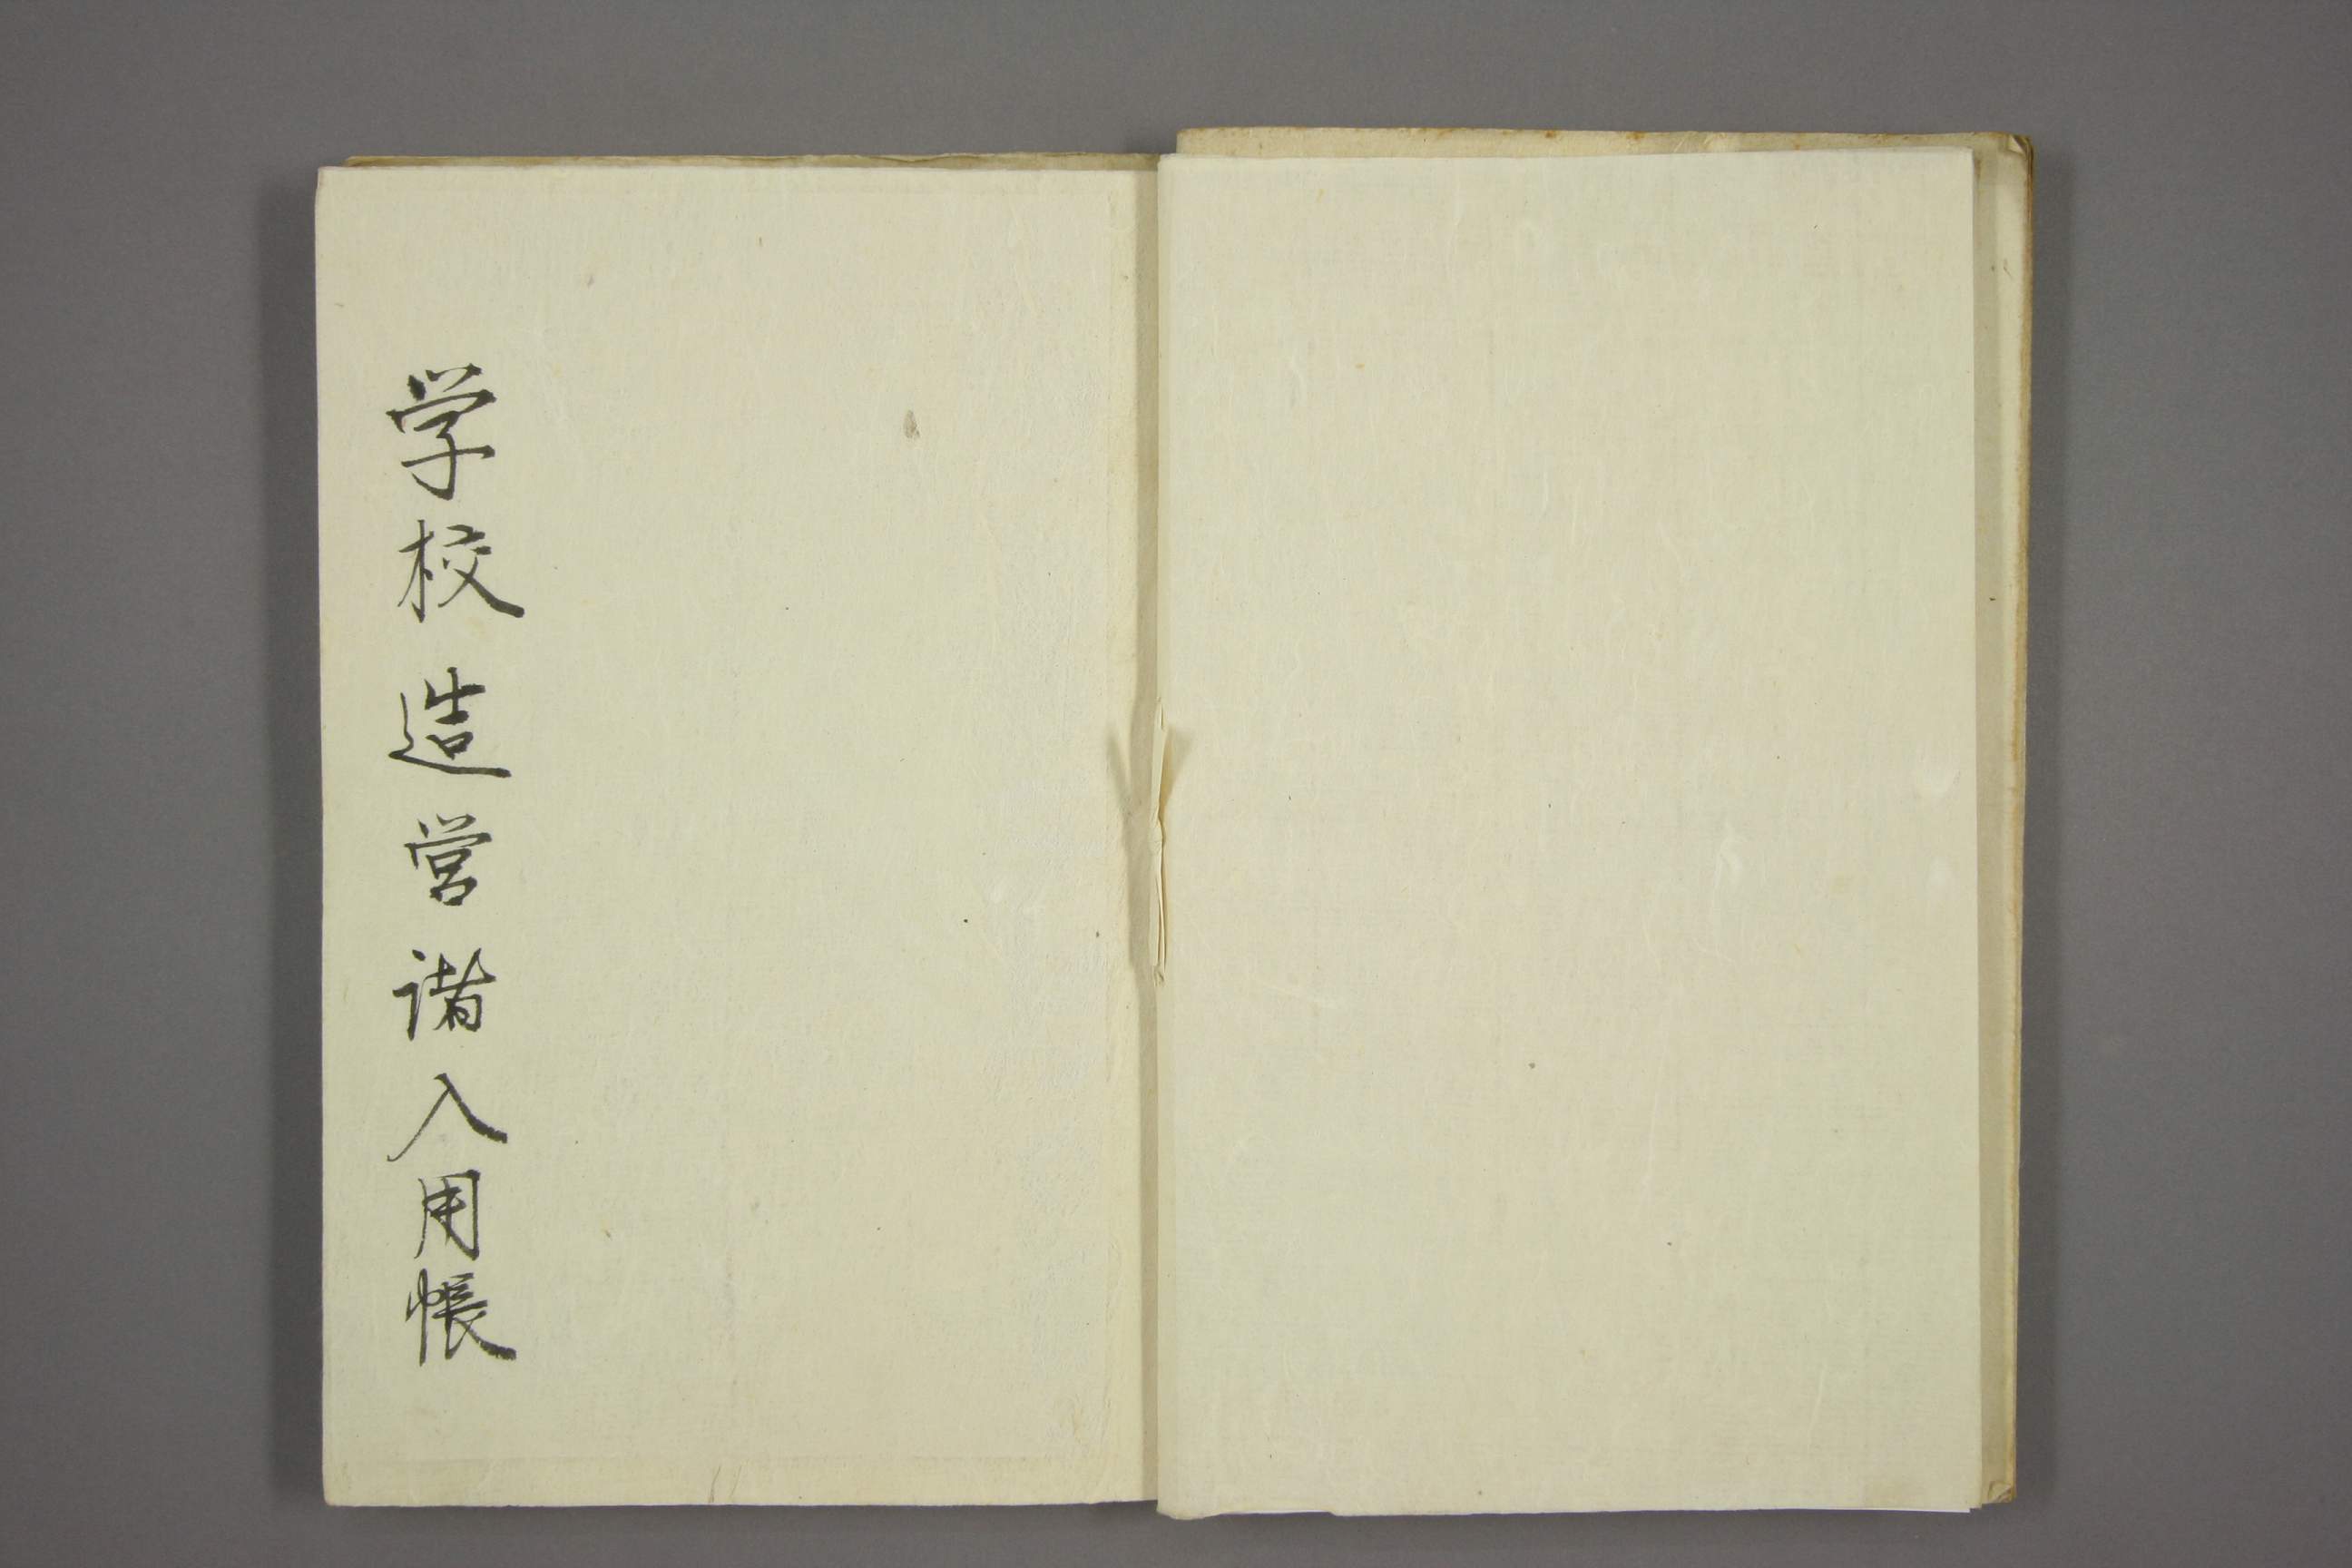 学校造営諸入用帳